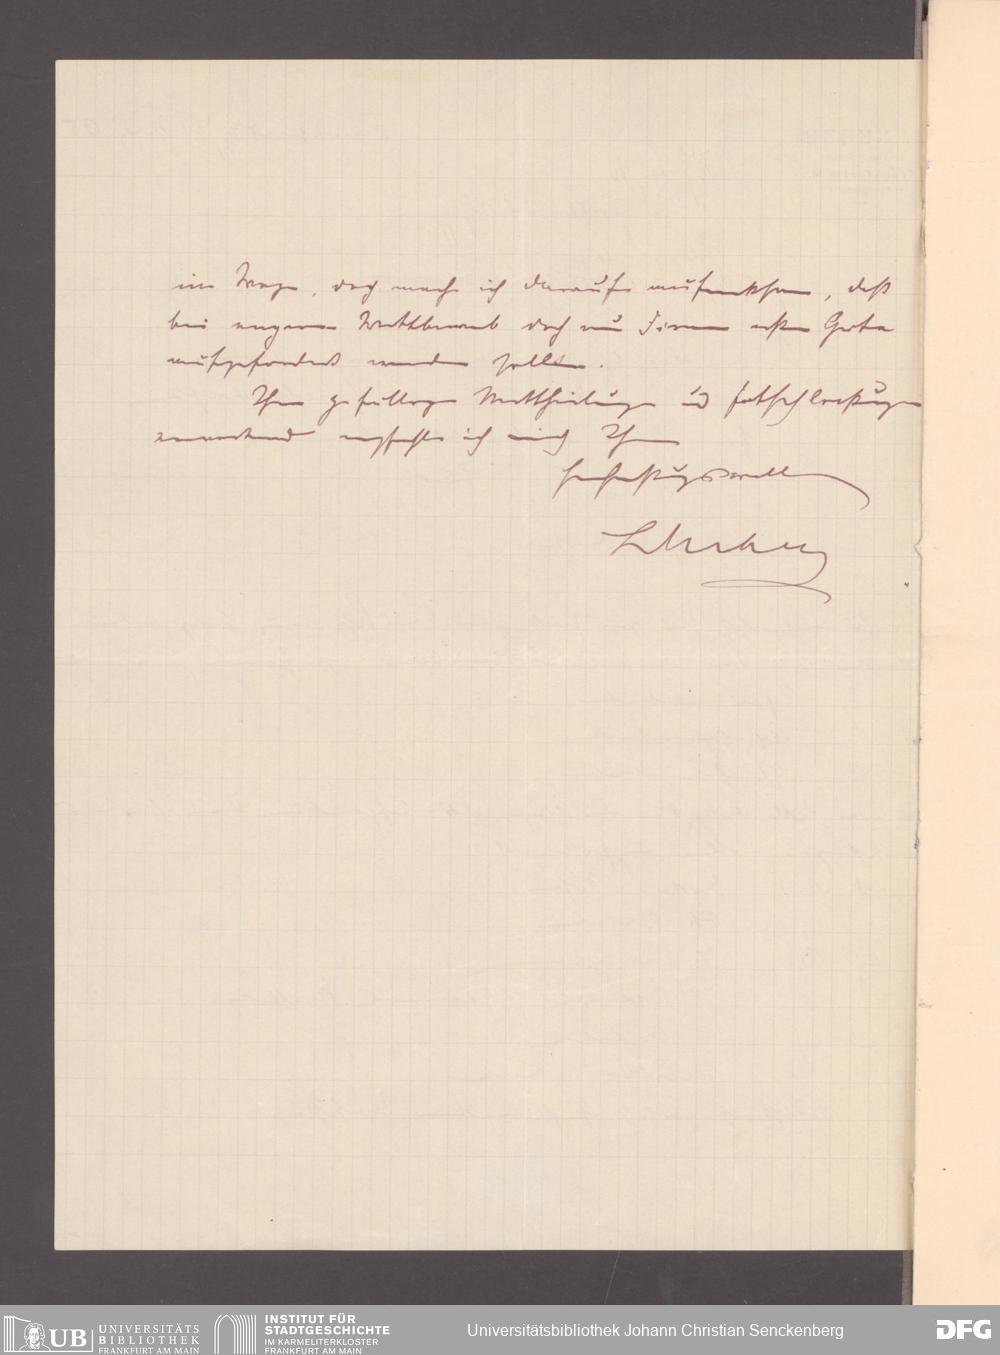 im Wege, doch mache ich darauf aufmerksam, daß
bei engerem Wettbewerb doch nur Firmen ersten Grades
aufgefordert werden sollten.
Ihrer gefälligen Mittheilung und
erwartend empfehle ich mich Ihnen
hochachtungsvoll
UB UNIVERSITÄTS
BIBLIOTHEK
FRANKFURT AM MAIN
INSTITUT FÜR
STADTGESCHICHTE
IM KARMELITERKLOSTER
FRANKFURT AM MAIN
Universitätsbibliothek Johann Christian Senckenberg
DFG